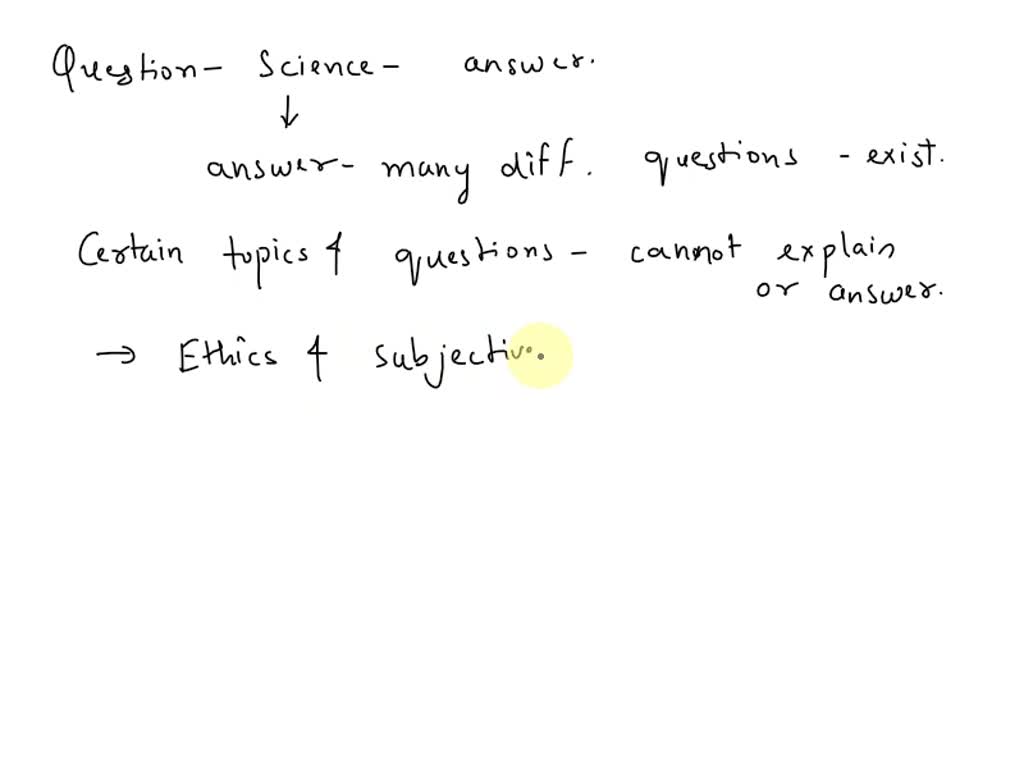 Question - Science - answer.
↓
answer - many diff. questions - exist.
Certain topics & questions - cannot explain
or answer.
→ Ethics & subjectiv